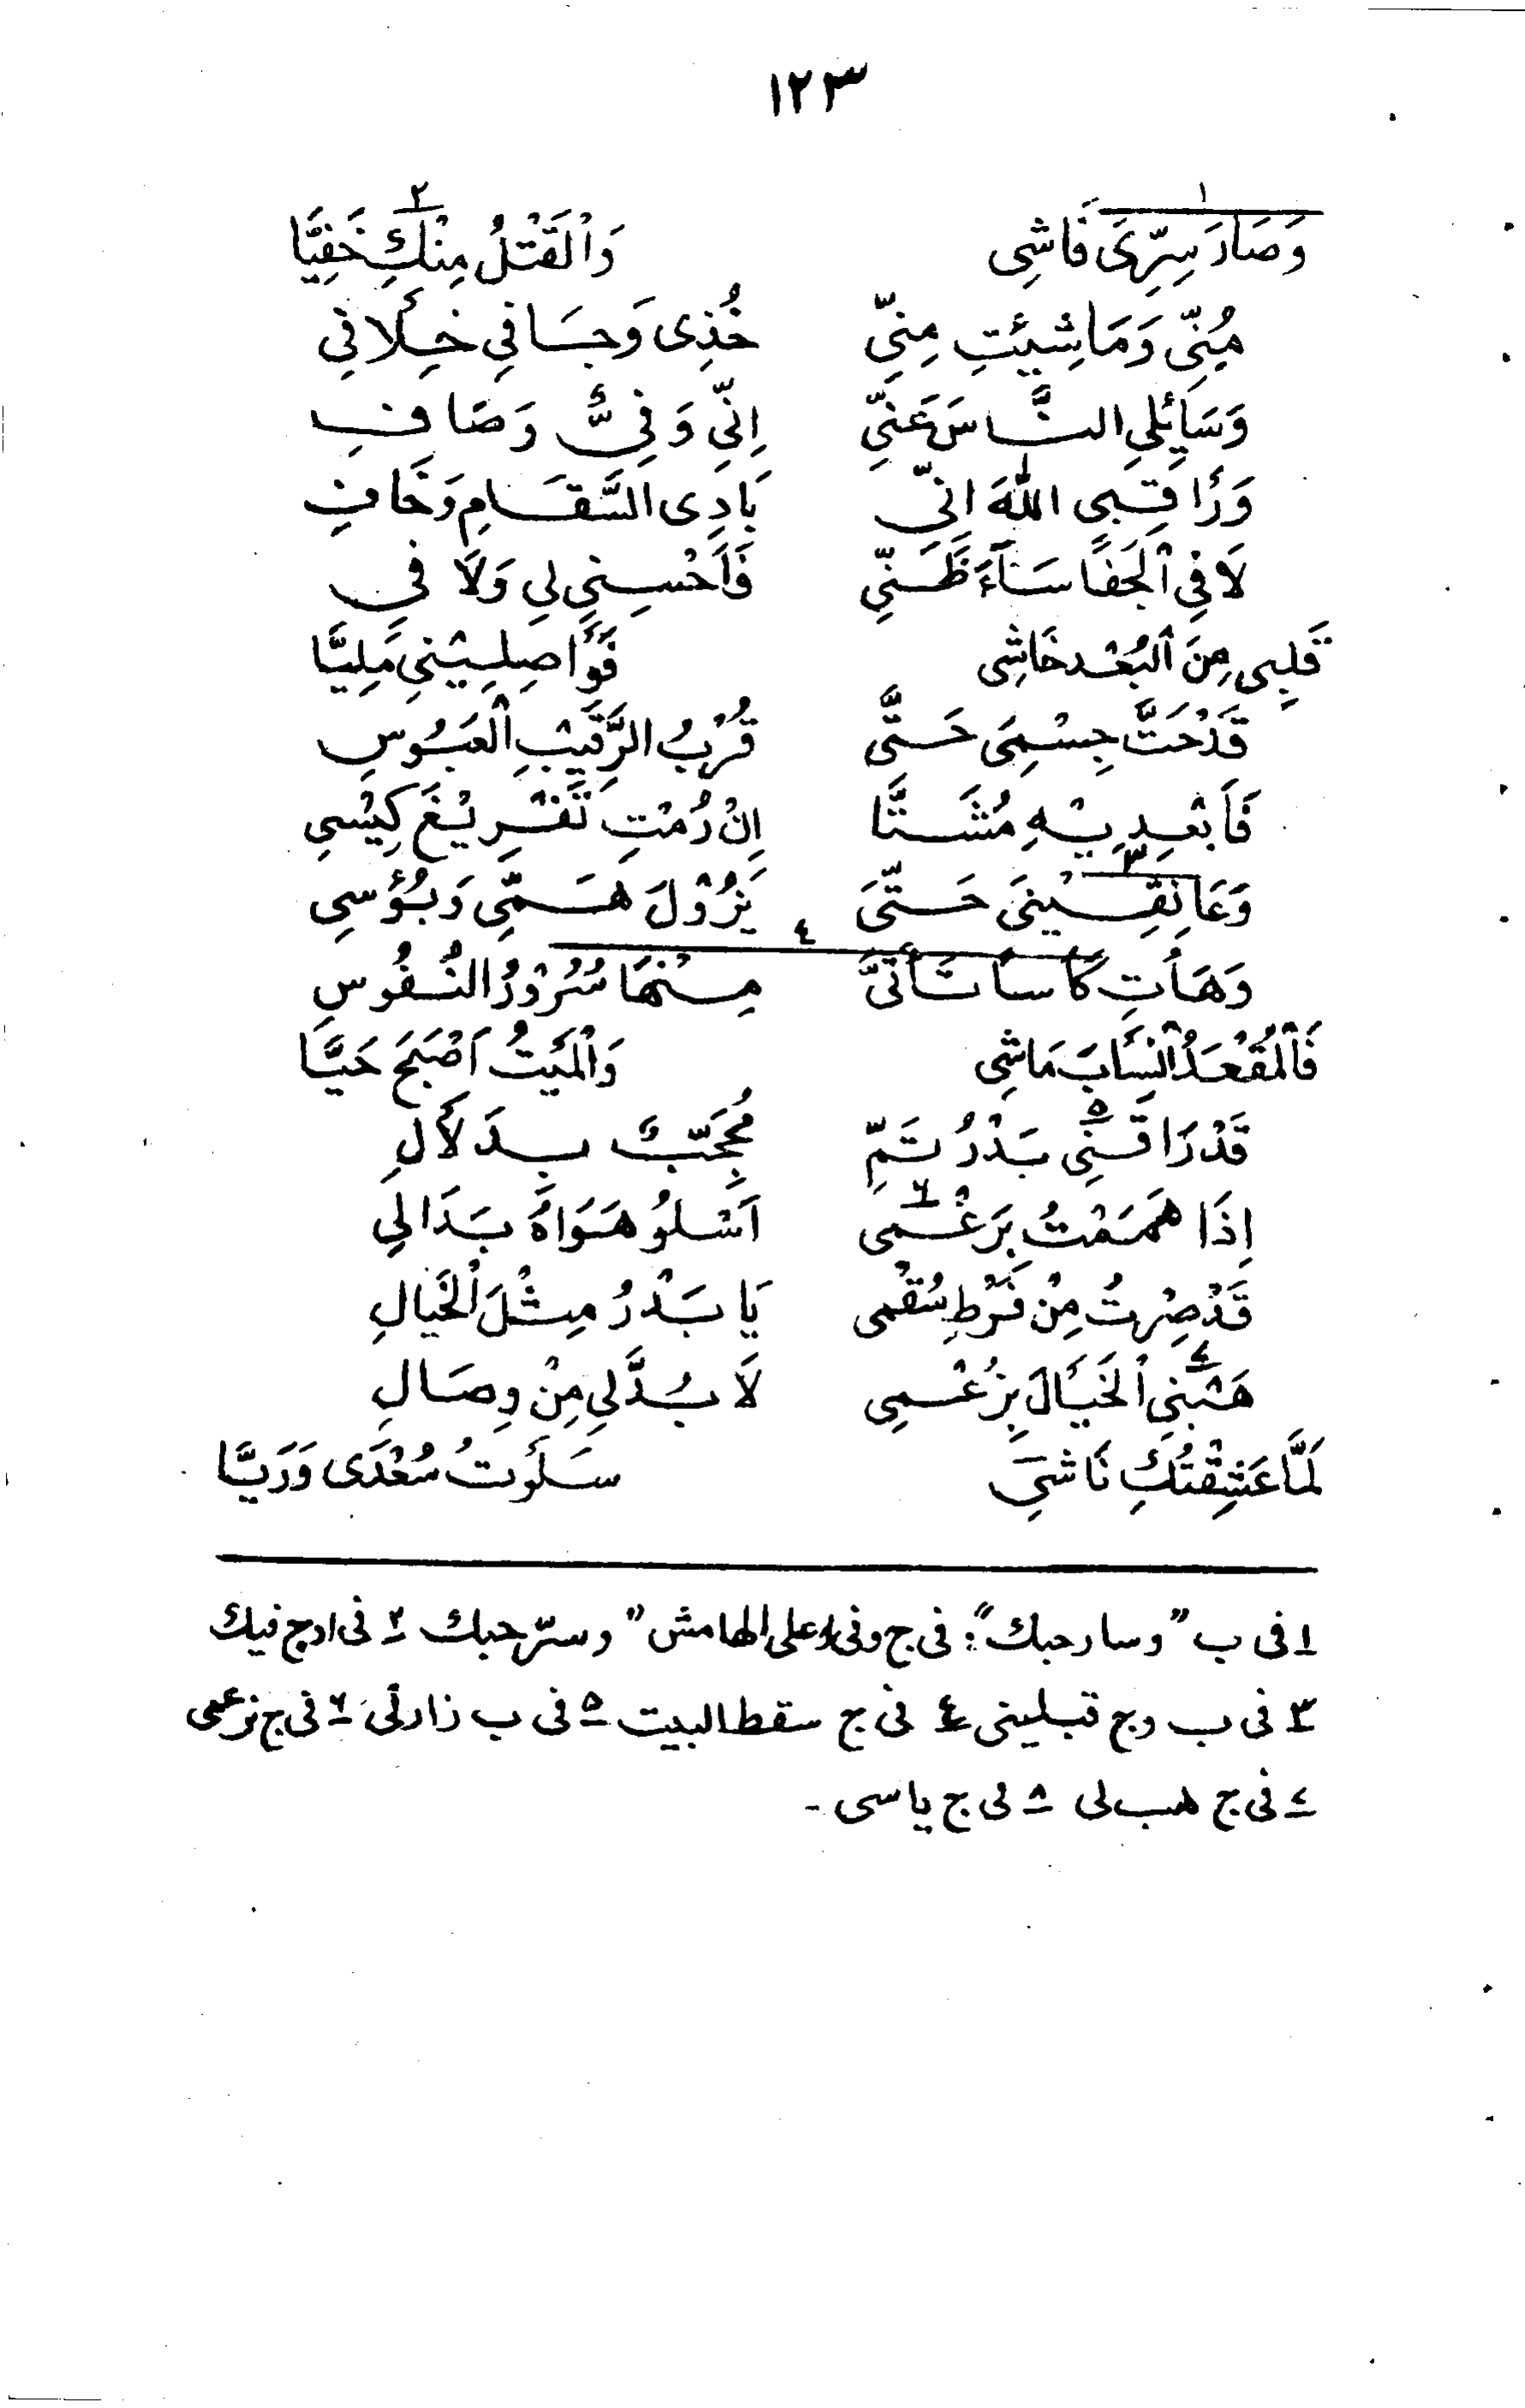 ١٢٣
وَصَارَ سِرِّىَ فَاشِى وَالْقَتْلُ مِنْكِ خَفِيَّا
مُنِّى وَمَا شِئتِ مِنِّي خُذِى وَجَافِي خِلَافِي
وَسَائِلِي النَّاسَ عَنِّي اِنِّي وَفِيٌّ وَصَافِ
وَرَاقِبِي اللهَ انِّي بَادِى السَّقَامِ وَخَافِ
لَا فِي الْجَفَا سَآءَ ظَنِّي فَاَحْسِنِي لِي وَلَا فِي
قَلْبِى مِنَ الْبُعْد خَاشِى فَوَاصِلِيْنِي مَلِيَّا
قَدْ حَتَّ جِسْمِىَ حَتَّى قُرْبُ الرَّقِيْبِ الْعَبُوسِ
فَاَبْعِدِيْهِ مُشَتَّا اِنْ رُمْتِ تَفْرِيْغَ كِيْسِي
وَعَانِقِيْنِىَ حَتَّىَ ٣ يَزُوْلَ هَمِّى وَبُؤْسِي
وَهَاتِ كَاساً تَأَتَّىَّ ٤ مِنْهَا سُرُوْرُ النُّفُوسِ
فَالْمُقْعَدُ انْسَابَ مَاشِي وَالْمَيْتُ اَصْبَحَ حَيَّا
قَدْ رَاقَنِى ٥ بَدْرُ تَمِّ مُحَجَّبٌ بِدَلَالِ
اِذَا هَمَمْتُ بِرَغْمِى ٦ اَسْلُو هَوَاهُ بَدَا لِي
قَدْ صِرْتُ مِنْ فَرْطِ سُقْمِى يَا بَدْرُ مِثْلَ الْخَيَالِ
هَبْنِي الْخَيَالَ بِزُعْمِي لَا بُدَّ لِي مِنْ وِصَالِ
لَمَّا عَشِقْتُكِ نَاشِي سَلَوتُ سُعْدَى وَرَيَّا
١ فى ب "وسارحبك": فى ج وفى ا على الهامش "وسرّ حبك ٢ فى ا و ج فيك
٣ فى ب و ج قبلينى ٤ فى ج سقط البيت ٥ فى ب زارنى ٦ فى ج زعمى
٧ فى ج هب لى ٨ فى ج ياسى -